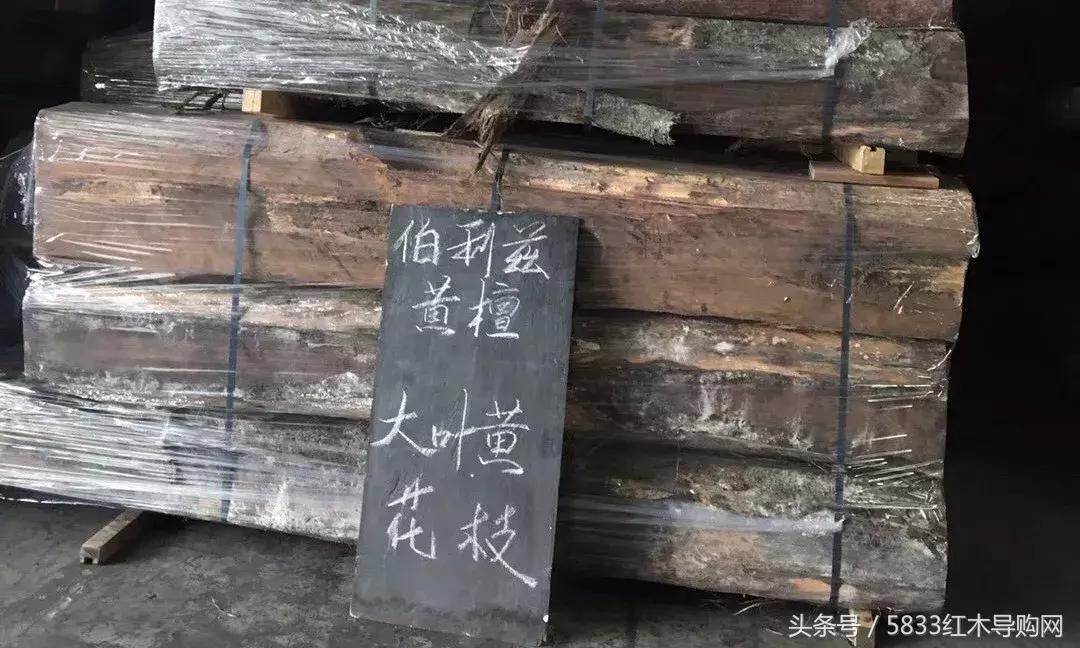 伯利兹
黄檀
大叶黄
花枝
头条号 / 5833红木导购网